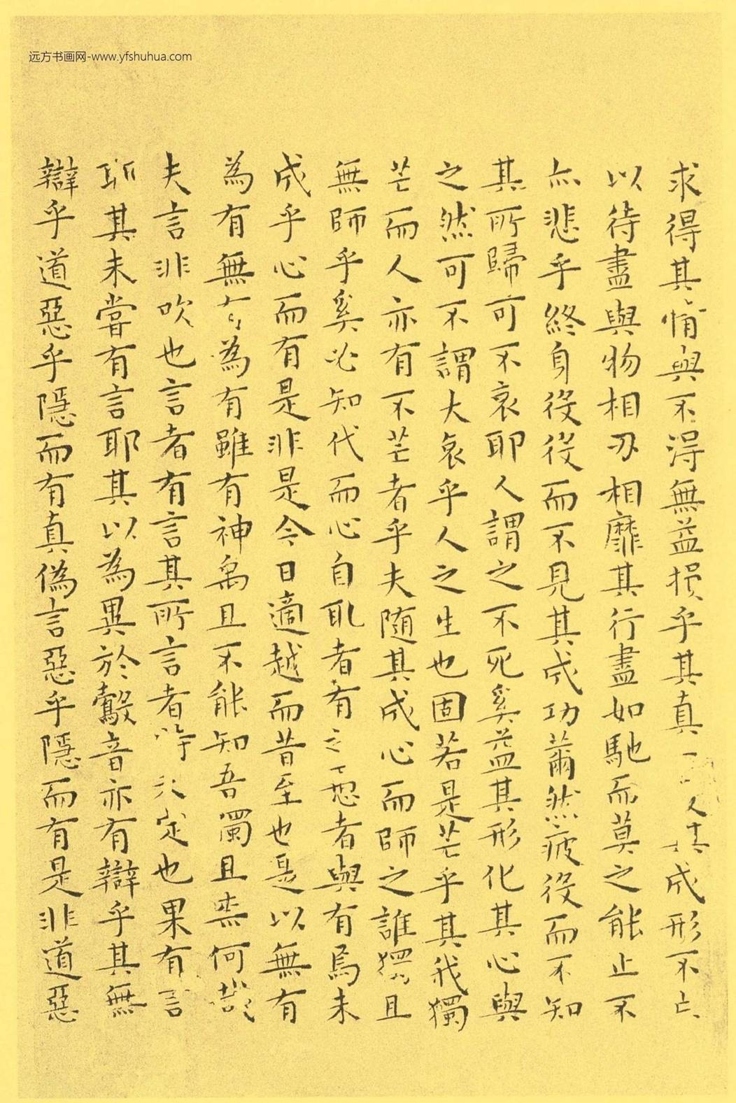 远方书画网-www.yfshuhua.com
求得其情與不淂無益損乎其真其成形不亡
以待盡與物相刃相靡其行盡如馳而莫之能止不
亦悲乎終身役役而不見其成功薾然疲役而不知
其所歸可不哀耶人謂之不死奚益其形化其心與
之然可不謂大哀乎人之生也固若是芒乎其我獨
芒而人亦有不芒者乎夫随其成心而師之誰獨且
無師乎奚必知代而心自取者有之愚者與有焉未
成乎心而有是非是今日適越而昔至也是以無有
為有無有為有雖有神禹且不能知吾獨且柰何哉
夫言非吹也言者有言其所言者特未定也果有言
耶其未嘗有言耶其以為異於鷇音亦有辯乎其無
辯乎道惡乎隱而有真偽言惡乎隱而有是非道惡